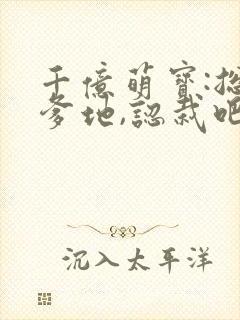 千億萌寶:總
爹地,認栽吧
沉入太平洋